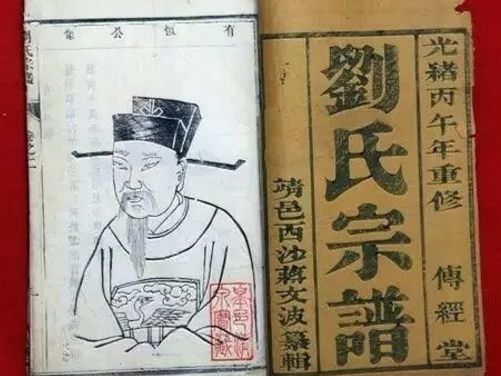 光緒丙午年重修
傳經堂
劉氏宗譜
靖邑西沙蔣文波纂輯
有恒公像
劉氏宗譜
卷之一